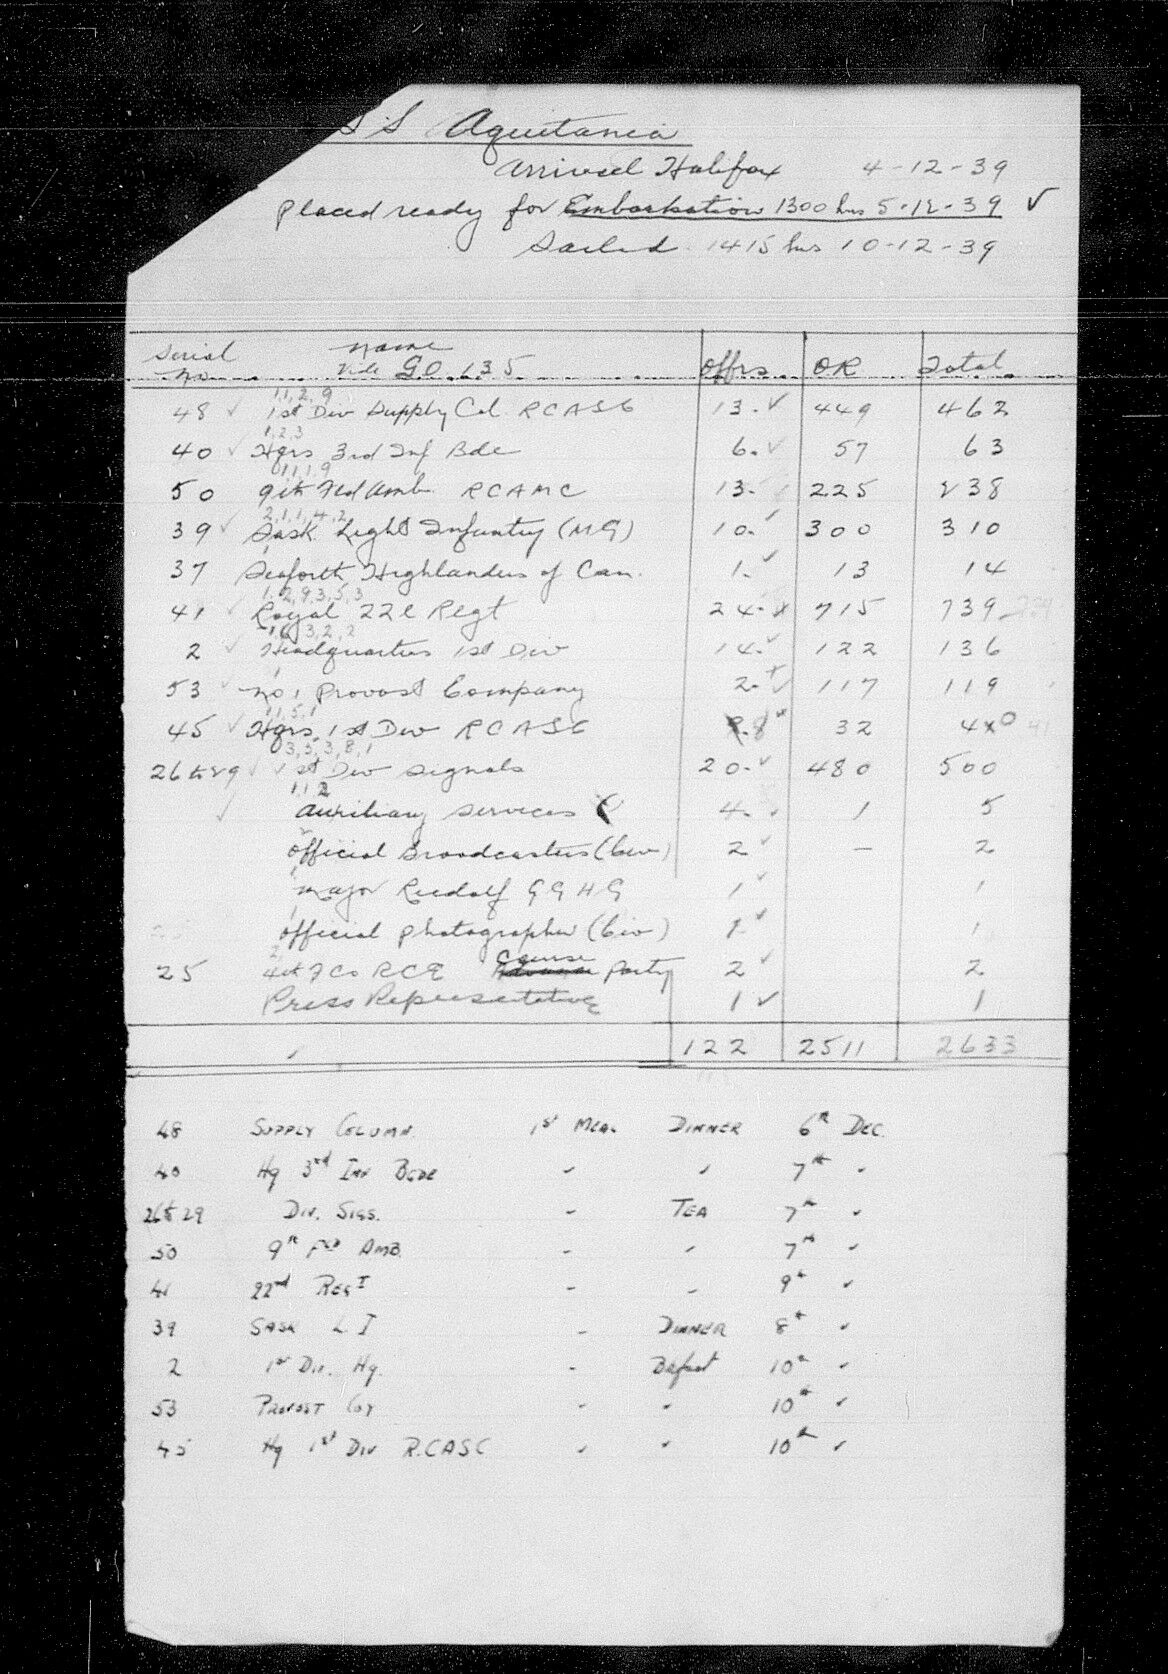 SS Aquitania
Arrived Halifax 4-12-39
placed ready for Embarkation 1300 hrs 5-12-39 ✓
Sailed 1415 hrs 10-12-39
Serial No. Name Vide GO 135 Offrs OR Total
1,1,2,9
48 ✓ 1st Div Supply Col. RCASC 13 ✓ 449 462
1,2,3
40 ✓ Hqrs 3rd Inf Bde 6 ✓ 57 63
1,1,1,9
50 9th Fld Amb. RCAMC 13 225 238
2,1,1,4,2
39 ✓ Sask Light Infantry (MG) 10 ✓ 300 310
1
37 Seaforth Highlanders of Can. 1 ✓ 13 14
1,2,9,3,5,3
41 ✓ Royal 22e Regt 24 x 715 739
2 ✓ Headquarters 1st Div 14 ✓ 122 136
1
53 ✓ No 1 Provost Company 2 ✓ 117 119
1,5,1
45 ✓ Hqrs 1st Div RCASC 8 32 40
3,5,3,8,1
26 to 29 ✓ ✓ 1st Div Signals 20 ✓ 480 500
1 1 2
✓ Auxiliary Services 4 ✓ 1 5
2
Official Broadcasters (Civ) 2 ✓ — 2
1
Major Rudolf GGHG 1 ✓ 1
1
Official photographer (Civ) 1 ✓ 1
2 Course
25 4th F Co RCE Advance Party 2 ✓ 2
Press Representative 1 ✓ 1
122 2511 2633
48 SUPPLY COLUMN. 1st MEAL DINNER 6th DEC.
40 Hq 3rd INF BGDE " " 7th "
26 to 29 DIV. SIGS. " TEA 7th "
50 9th FLD AMB. " " 7th "
41 22nd REGT " " 9th "
39 SASK L I " DINNER 8th "
2 1st DIV. Hq. " Brfast 10th "
53 PROVOST COY " " 10th "
45 Hq 1st DIV R.CASC " " 10th "